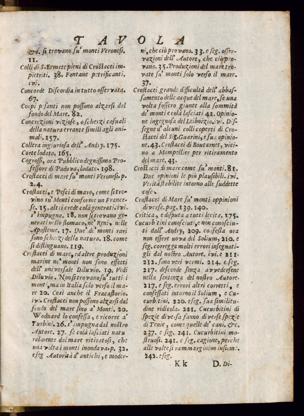 TAVOLA
gra. si trovano su' monti Veronesi.
11.
Colli di S. Ermete pieni di Crustacei im-
pietriti. 38. Fontane petrificanti.
ivi.
Concorde Discordia in tutto osservata.
67.
Corpi pesanti non possono alzarsi dal
fondo del Mare. 82.
Concrezioni viziose, e scherzi casuali
della natura errante simili agli ani-
mali. 157.
Collera ingiusta dell' Andry. 175.
Corte lodata. 165.
Cogrossi, ora Pubblico degnissimo Pro-
fessore di Padova, lodato. 198.
Crostacei di mare su' monti Veronesi. p.
2. 4.
Crostacei, e Pesci di mare, come si tro-
vino su' Monti
si impugna. 18. non si trovano pie-
ne' Reni, e nelle
Aposteme. 17. Due' di' monti rari
sono scherzi della natura. 18. come
si distinguano. 119.
Crostacei di mare, ed altre produzioni
marine su' monti non sono effetti
dell' universale Diluvio. 19. Vedi
Diluvio. Non si trovano su' tutti i
monti, ma in Italia solo verso il ma-
re 20. Ceri anche il Fracastorio.
ivi. Crostacei non possono alzarsi dal
fondo del mare sino a' Monti. 20.
Wodvard lo confessa, e ricorre a'
Turbini. 26. s'impugna dal nostro
Autore. 27. se sia lasciati natu-
ralmente dal mare ritiratosi, che
una volta i monti inondava. p. 32.
e seg. Autorità d'antichi, e moder-
ni, che ciò provano. 33. e seg. osser-
vazioni dell' Autore, che ciò pro-
vano. 35. Produzioni del mare tro-
varsi su' monti solo verso il mare.
37.
Crostacei grande difficoltà dell' abbas-
samento delle acque del mare, se una
volta fossero giunte alla sommità
de' monti e colà lasciati 41. Opinio-
ne ingegnosa del Leibnizio. ivi. Di-
segni d' alcuni colli coperti di Cro-
stacei del Sig. Guarini, e sua opinio-
ne. 43. Crostacei di Boutaunet, vici-
no a Mompellier per ritiramento
del mare. 43.
Crostacei di mare come su' monti. 81.
Due opinioni le più plausibili. ivi.
Verità stabilite intorno alle suddette
cose.
Crostacei di Mare su' monti opinioni
diverse. pag. 139. 140.
Critica, e disputa a tutti lecita. 175.
Cucurbitini come siano, e non conosciu-
ti dall' Andry. 209. cosa essa ora
non essere uova del Solium. 210. e
seg. correggo molti errori insegnati-
gli dal nostro Autore. ivi. e 211.
212. sono veri vermi. 214. e seg.
217. discende senza avvedersene
nella sentenza del nostro Autore.
217. e seg. errori altri corretti, e
confessati intorno il Solium, e Cu-
curbitini. 220. e seg. sua similitu-
dine ridicola. 221. Cucurbitini di
spezie diversa sanno di diverse spezie
di Tenie, come quelle de' cani, &c.
237. e seg. costanza di nostri.
341. e seg. cagione, perchè
alle volte si rammargino insieme.
242. e seg.
Kk
D. Di-